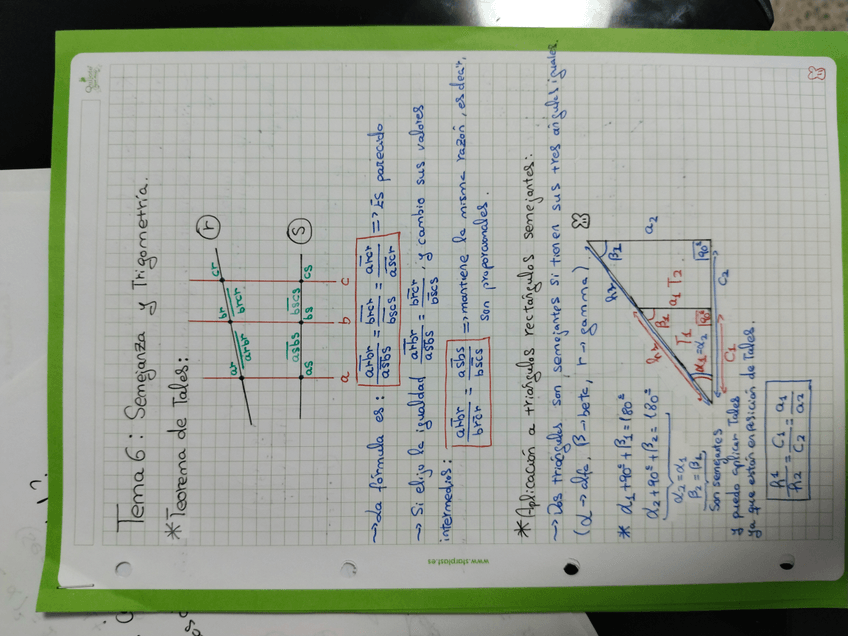 Tema 6: Semejanza y Trigometría.
* Teorema de Tales:
r
s
ar br cr
arbr brcr
asbs bscs
as bs cs
a b c
~> La fórmula es: arbr/asbs = brcr/bscs = arcr/ascr => Es pareado
~> Si elijo la igualdad arbr/asbs = brcr/bscs, y cambio sus valores
intermedios: arbr/brcr = asbs/bscs => mantiene la misma razón, es decir,
son proporcionales.
* Aplicación a triángulos rectángulos semejantes:
~> Dos triángulos son semejantes si tienen sus tres ángulos iguales.
(α -> alfa, β -> beta, r -> gamma)
* α1 + 90º + β1 = 180º
α2 + 90º + β2 = 180º
α2 = α1
β2 = β1
Son semejantes
y puedo aplicar Tales
ya que están en posición de Tales.
h1/h2 = C1/C2 = a1/a2
β2
a2
β1
a1
T2
T1
α1=α2
90º
90º
C1
C2
www.starplast.es